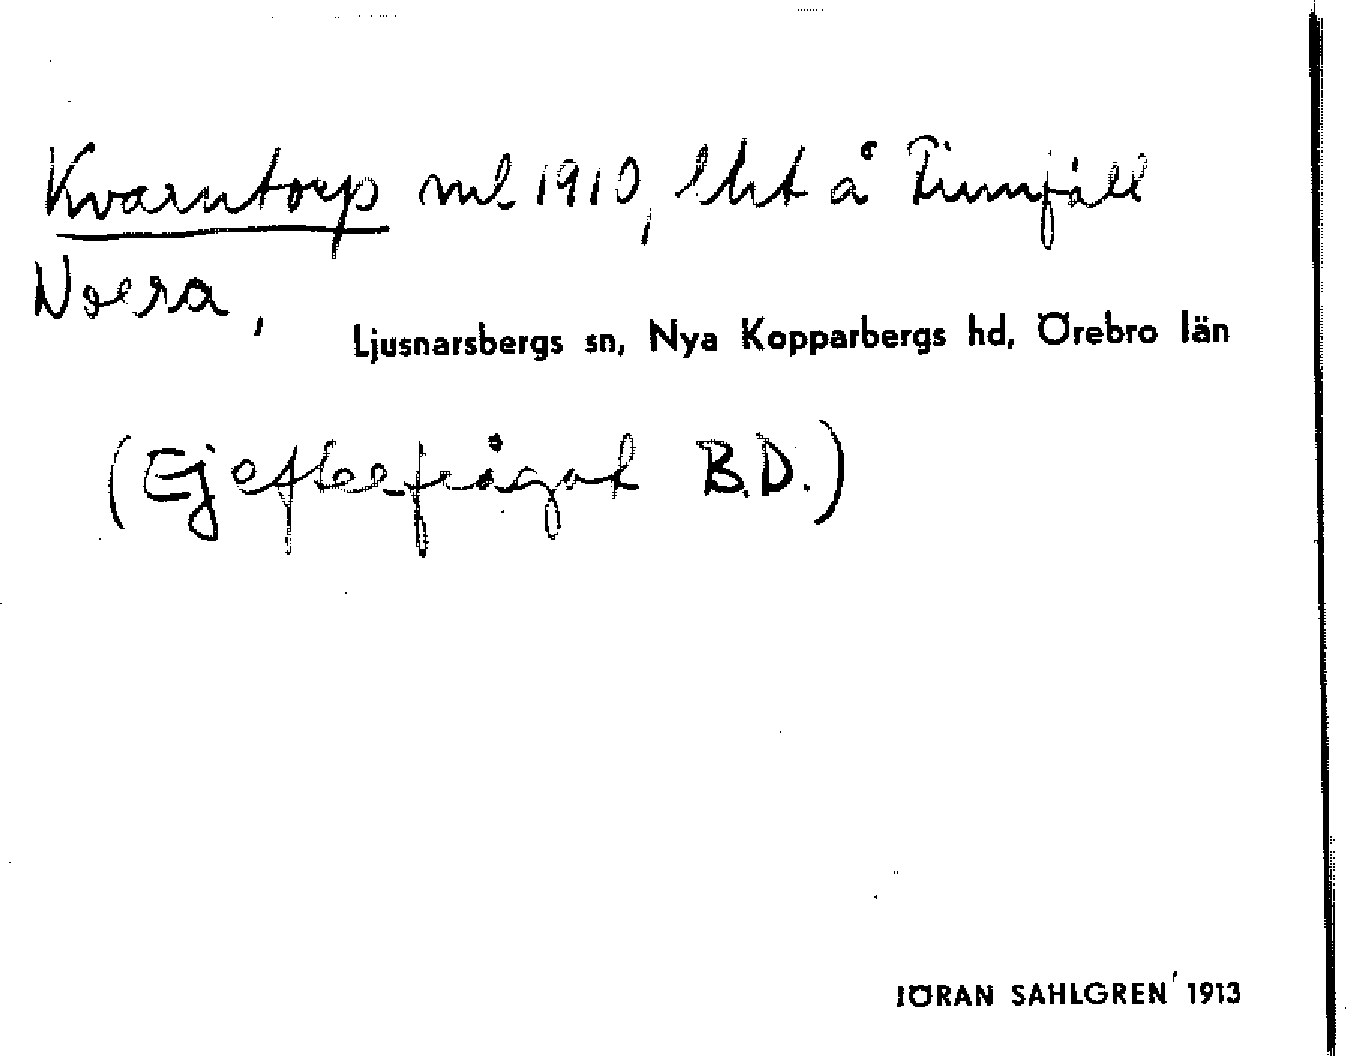 Kvarntorp ml 1910, lht å Finnfall
Norra,
Ljusnarsbergs sn, Nya Kopparbergs hd, Örebro län
(Ej efterfrågat B.D.)
JÖRAN SAHLGREN 1913